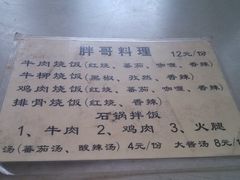 胖哥料理 12元/份
牛肉烧饭(红烧、番茄、咖喱、香辣)
牛柳烧饭(黑椒、孜然、香辣)
鸡肉烧饭(红烧、番茄、咖喱、香辣)
排骨烧饭(红烧、香辣)
石锅拌饭
1、牛肉 2、鸡肉 3、火腿
汤(番茄汤、酸辣汤) 4元/份 大酱汤 8元/